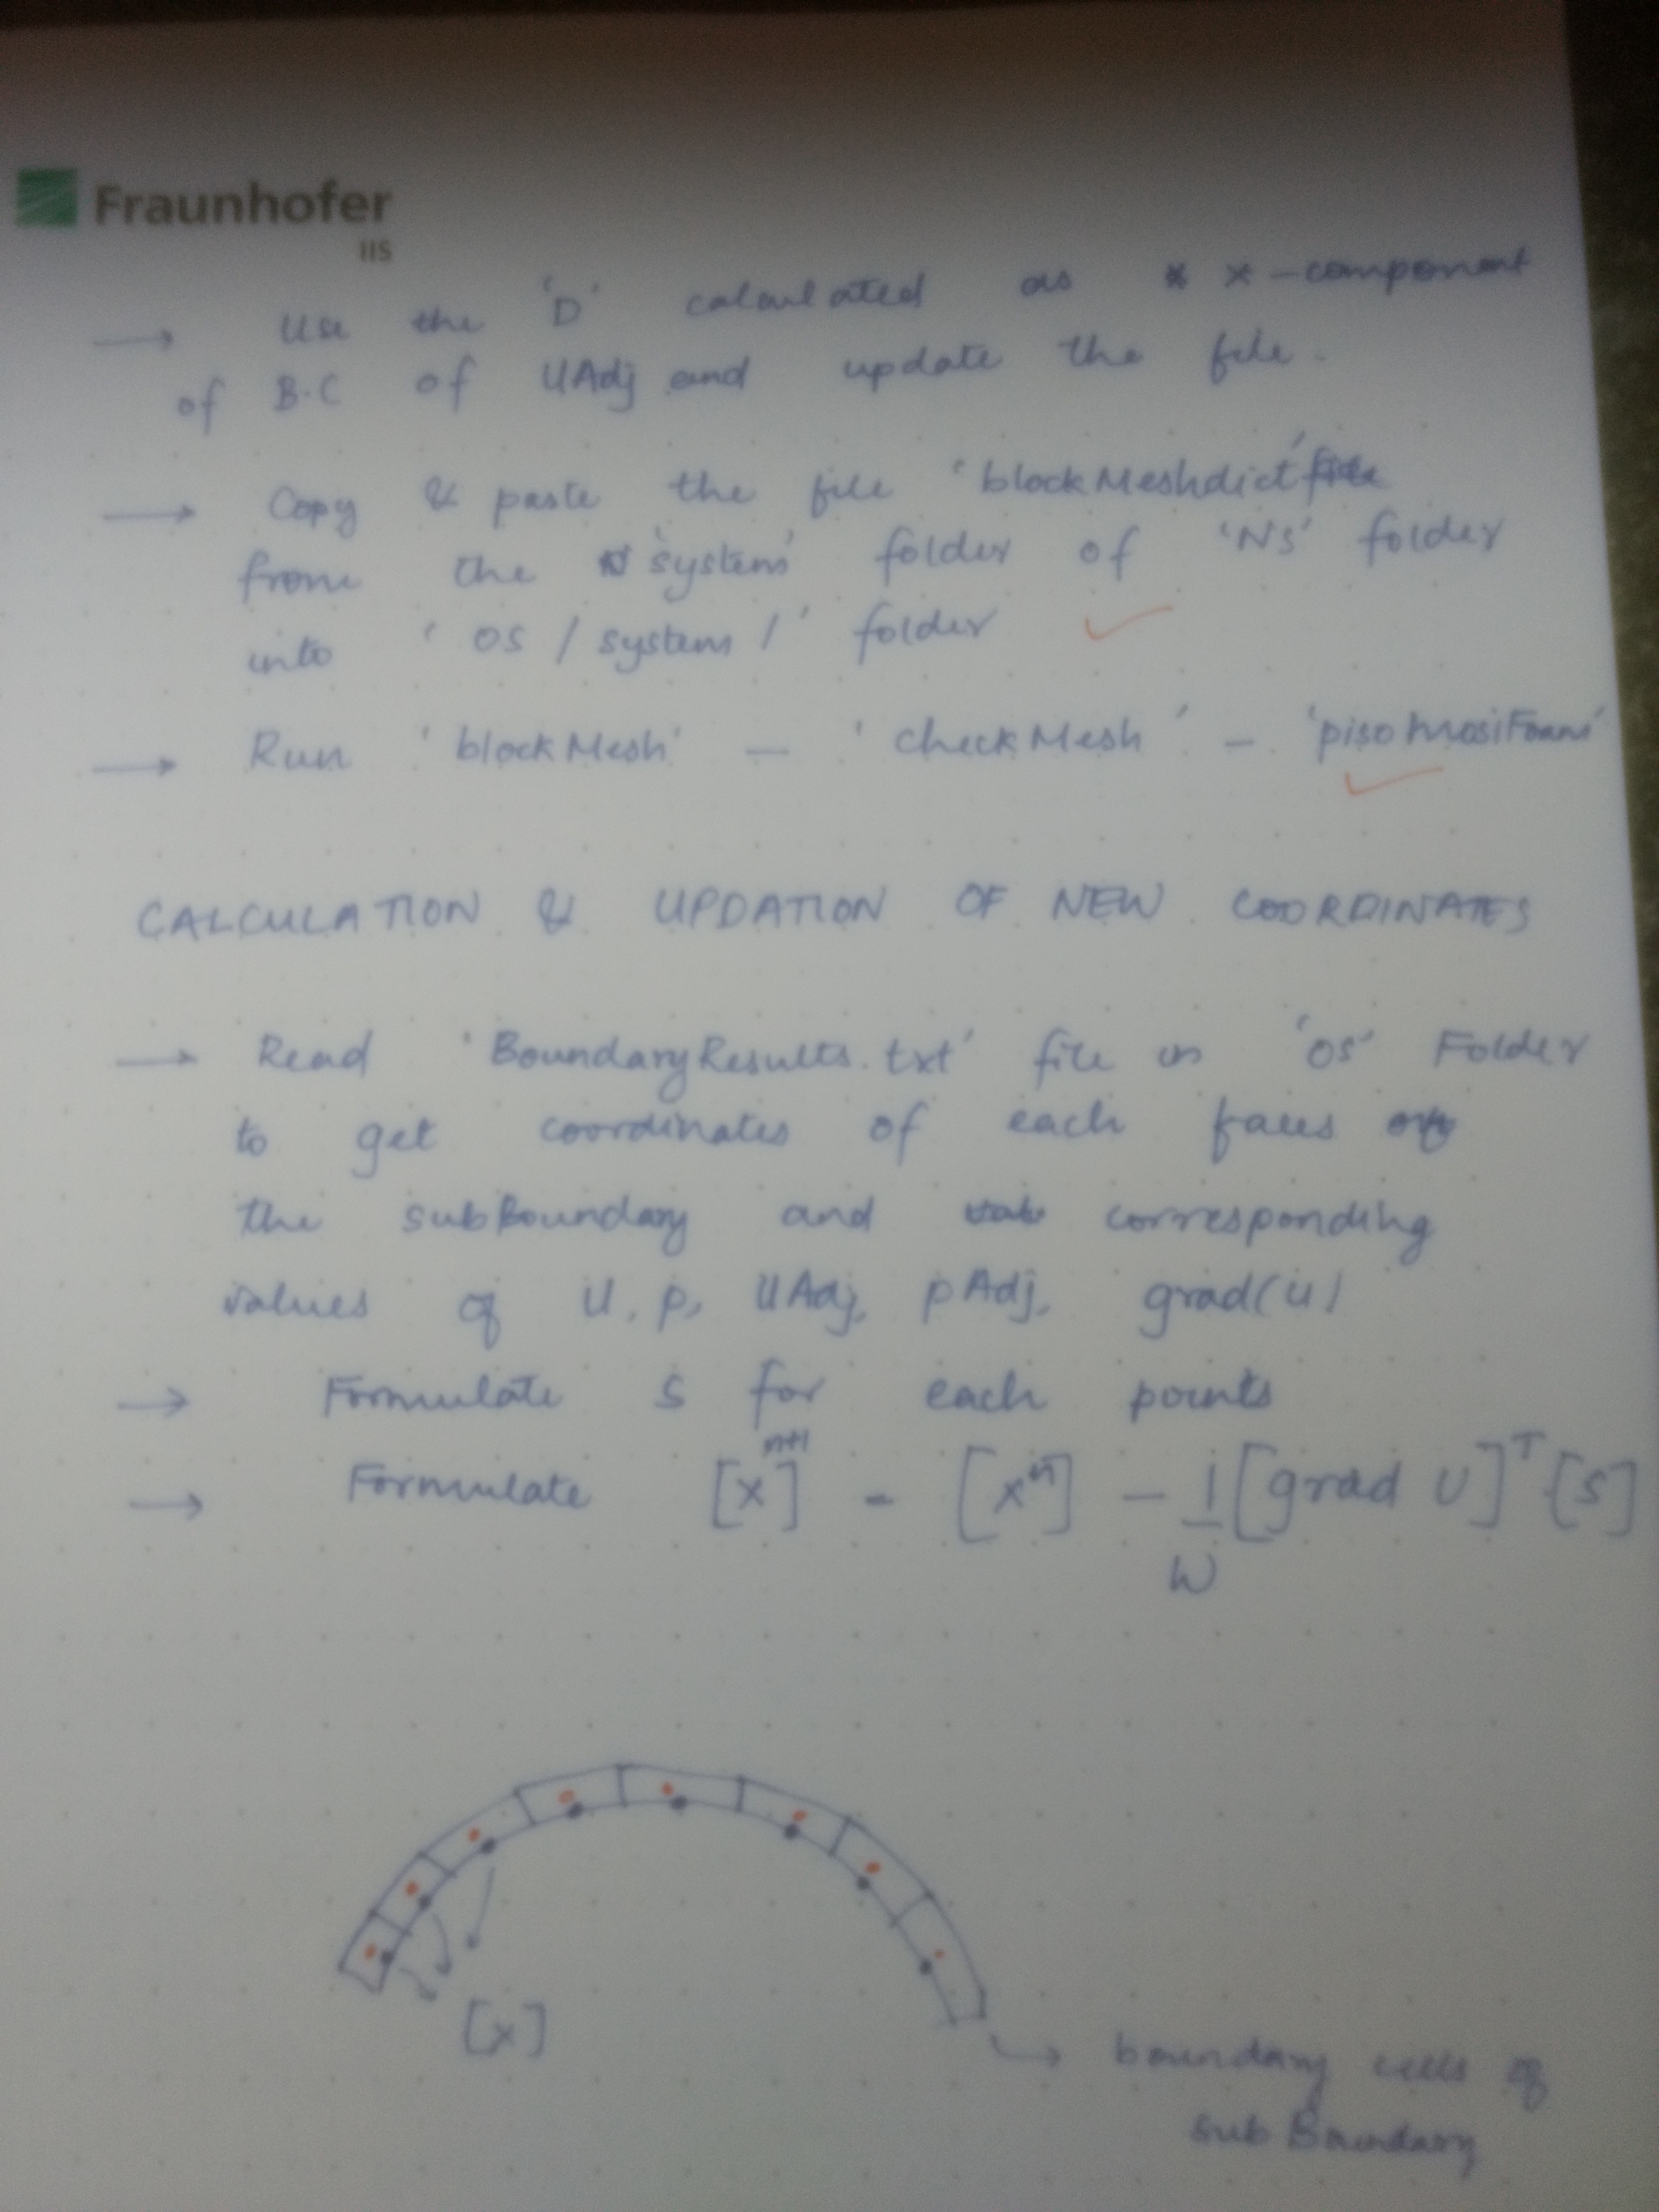 Fraunhofer
IIS
→ Use the 'D' calculated as x-component
of B.C of UAdj and update the file.
→ Copy & paste the file 'blockMeshdict'
from the 'system' folder of 'NS' folder
into 'OS / system /' folder ✓
→ Run 'blockMesh' – 'checkMesh' –
✓
CALCULATION & UPDATION OF NEW COORDINATES
→ Read 'BoundaryResults.txt' file in 'OS' Folder
to get coordinates of each faces
the subBoundary and corresponding
values of U, p, UAdj, pAdj, grad(U)
→ Formulate S for each points
→ Formulate [x]^n+1 = [x^n] - 1/W [grad U]^T . [S]
[x]
→ boundary cells of
sub Boundary